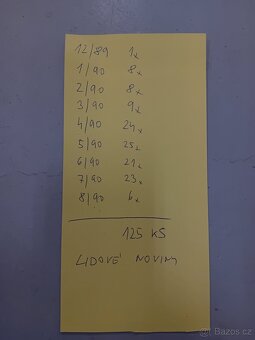 12/89 1x
1/90 8x
2/90 8x
3/90 9x
4/90 24x
5/90 25x
6/90 21x
7/90 23x
8/90 6x
125 KS
LIDOVÉ NOVINY
Bazos.cz